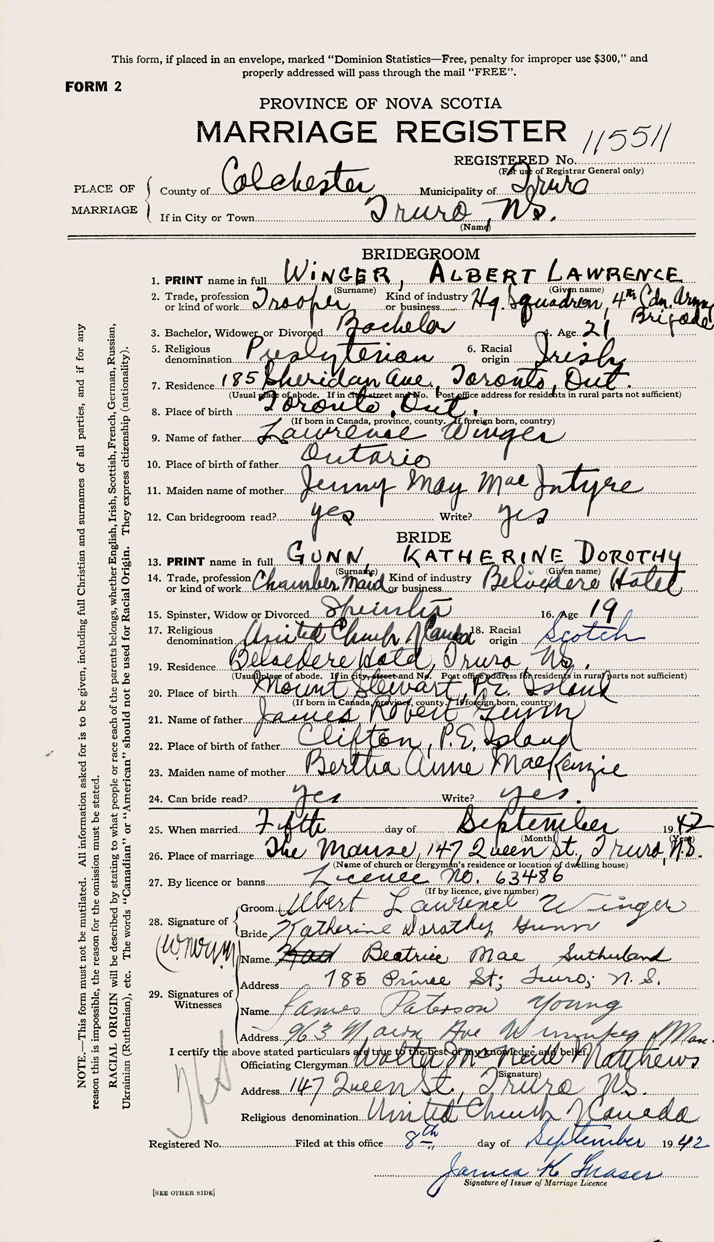 This form, if placed in an envelope, marked "Dominion Statistics—Free, penalty for improper use $300," and
properly addressed will pass through the mail "FREE".
FORM 2
PROVINCE OF NOVA SCOTIA
MARRIAGE REGISTER 115511
REGISTERED No.
(For use of Registrar General only)
PLACE OF MARRIAGE
County of Colchester Municipality of Truro
If in City or Town Truro, NS.
(Name)
BRIDEGROOM
1. PRINT name in full WINGER, ALBERT LAWRENCE
(Surname) (Given name)
2. Trade, profession or kind of work Trooper Kind of industry or business Hq. Squadron, 4th Cdn. Army Brigade
3. Bachelor, Widower or Divorced Bachelor 4. Age 21
5. Religious denomination Presbyterian 6. Racial origin Irish
7. Residence 185 Sheridan Ave, Toronto, Ont.
(Usual place of abode. If in city street and No. Post office address for residents in rural parts not sufficient)
8. Place of birth Toronto, Ont.
(If born in Canada, province, county. If foreign born, country)
9. Name of father Lawrence Winger
10. Place of birth of father Ontario
11. Maiden name of mother Jenny May MacIntyre
12. Can bridegroom read? yes Write? yes
BRIDE
13. PRINT name in full GUNN, KATHERINE DOROTHY
(Surname) (Given name)
14. Trade, profession or kind of work Chamber Maid Kind of industry or business Belvedere Hotel
15. Spinster, Widow or Divorced Spinster 16. Age 19
17. Religious denomination United Church of Canada 18. Racial origin Scotch
19. Residence Belvedere Hotel, Truro, NS.
(Usual place of abode. If in city, street and No. Post office address for residents in rural parts not sufficient)
20. Place of birth Mount Stewart, P.E. Island
(If born in Canada, province, county. If foreign born, country)
21. Name of father James Robert Gunn
22. Place of birth of father Clifton, P.E. Island
23. Maiden name of mother Bertha Anne MacKenzie
24. Can bride read? yes Write? yes.
25. When married Fifth day of September 1942
(Month) (Year)
26. Place of marriage The Manse, 147 Queen St, Truro, N.S.
(Name of church or clergyman's residence or location of dwelling house)
27. By licence or banns Licence No. 63486
(If by licence, give number)
28. Signature of
Groom Albert Lawrence Winger
Bride Katherine Dorothy Gunn
29. Signatures of Witnesses
Name Beatrice Mae Sutherland
Address 785 Prince St; Truro; N.S.
Name James Paterson Young
Address 963 Ave Winnipeg Man.
I certify the above stated particulars are true to the best of my knowledge and belief.
Officiating Clergyman Walter McNeill Matthews
(Signature)
Address 147 Queen St, Truro NS.
Religious denomination United Church of Canada
Registered No. Filed at this office 8th day of September 1942
James K Fraser
Signature of Issuer of Marriage Licence
[SEE OTHER SIDE]
NOTE.—This form must not be mutilated. All information asked for is to be given, including full Christian and surnames of all parties, and if for any
reason this is impossible, the reason for the omission must be stated.
RACIAL ORIGIN will be described by stating to what people or race each of the parents belongs, whether English, Irish, Scottish, French, German, Russian,
Ukrainian (Ruthenian), etc. The words "Canadian" or "American" should not be used for Racial Origin. They express citizenship (nationality).